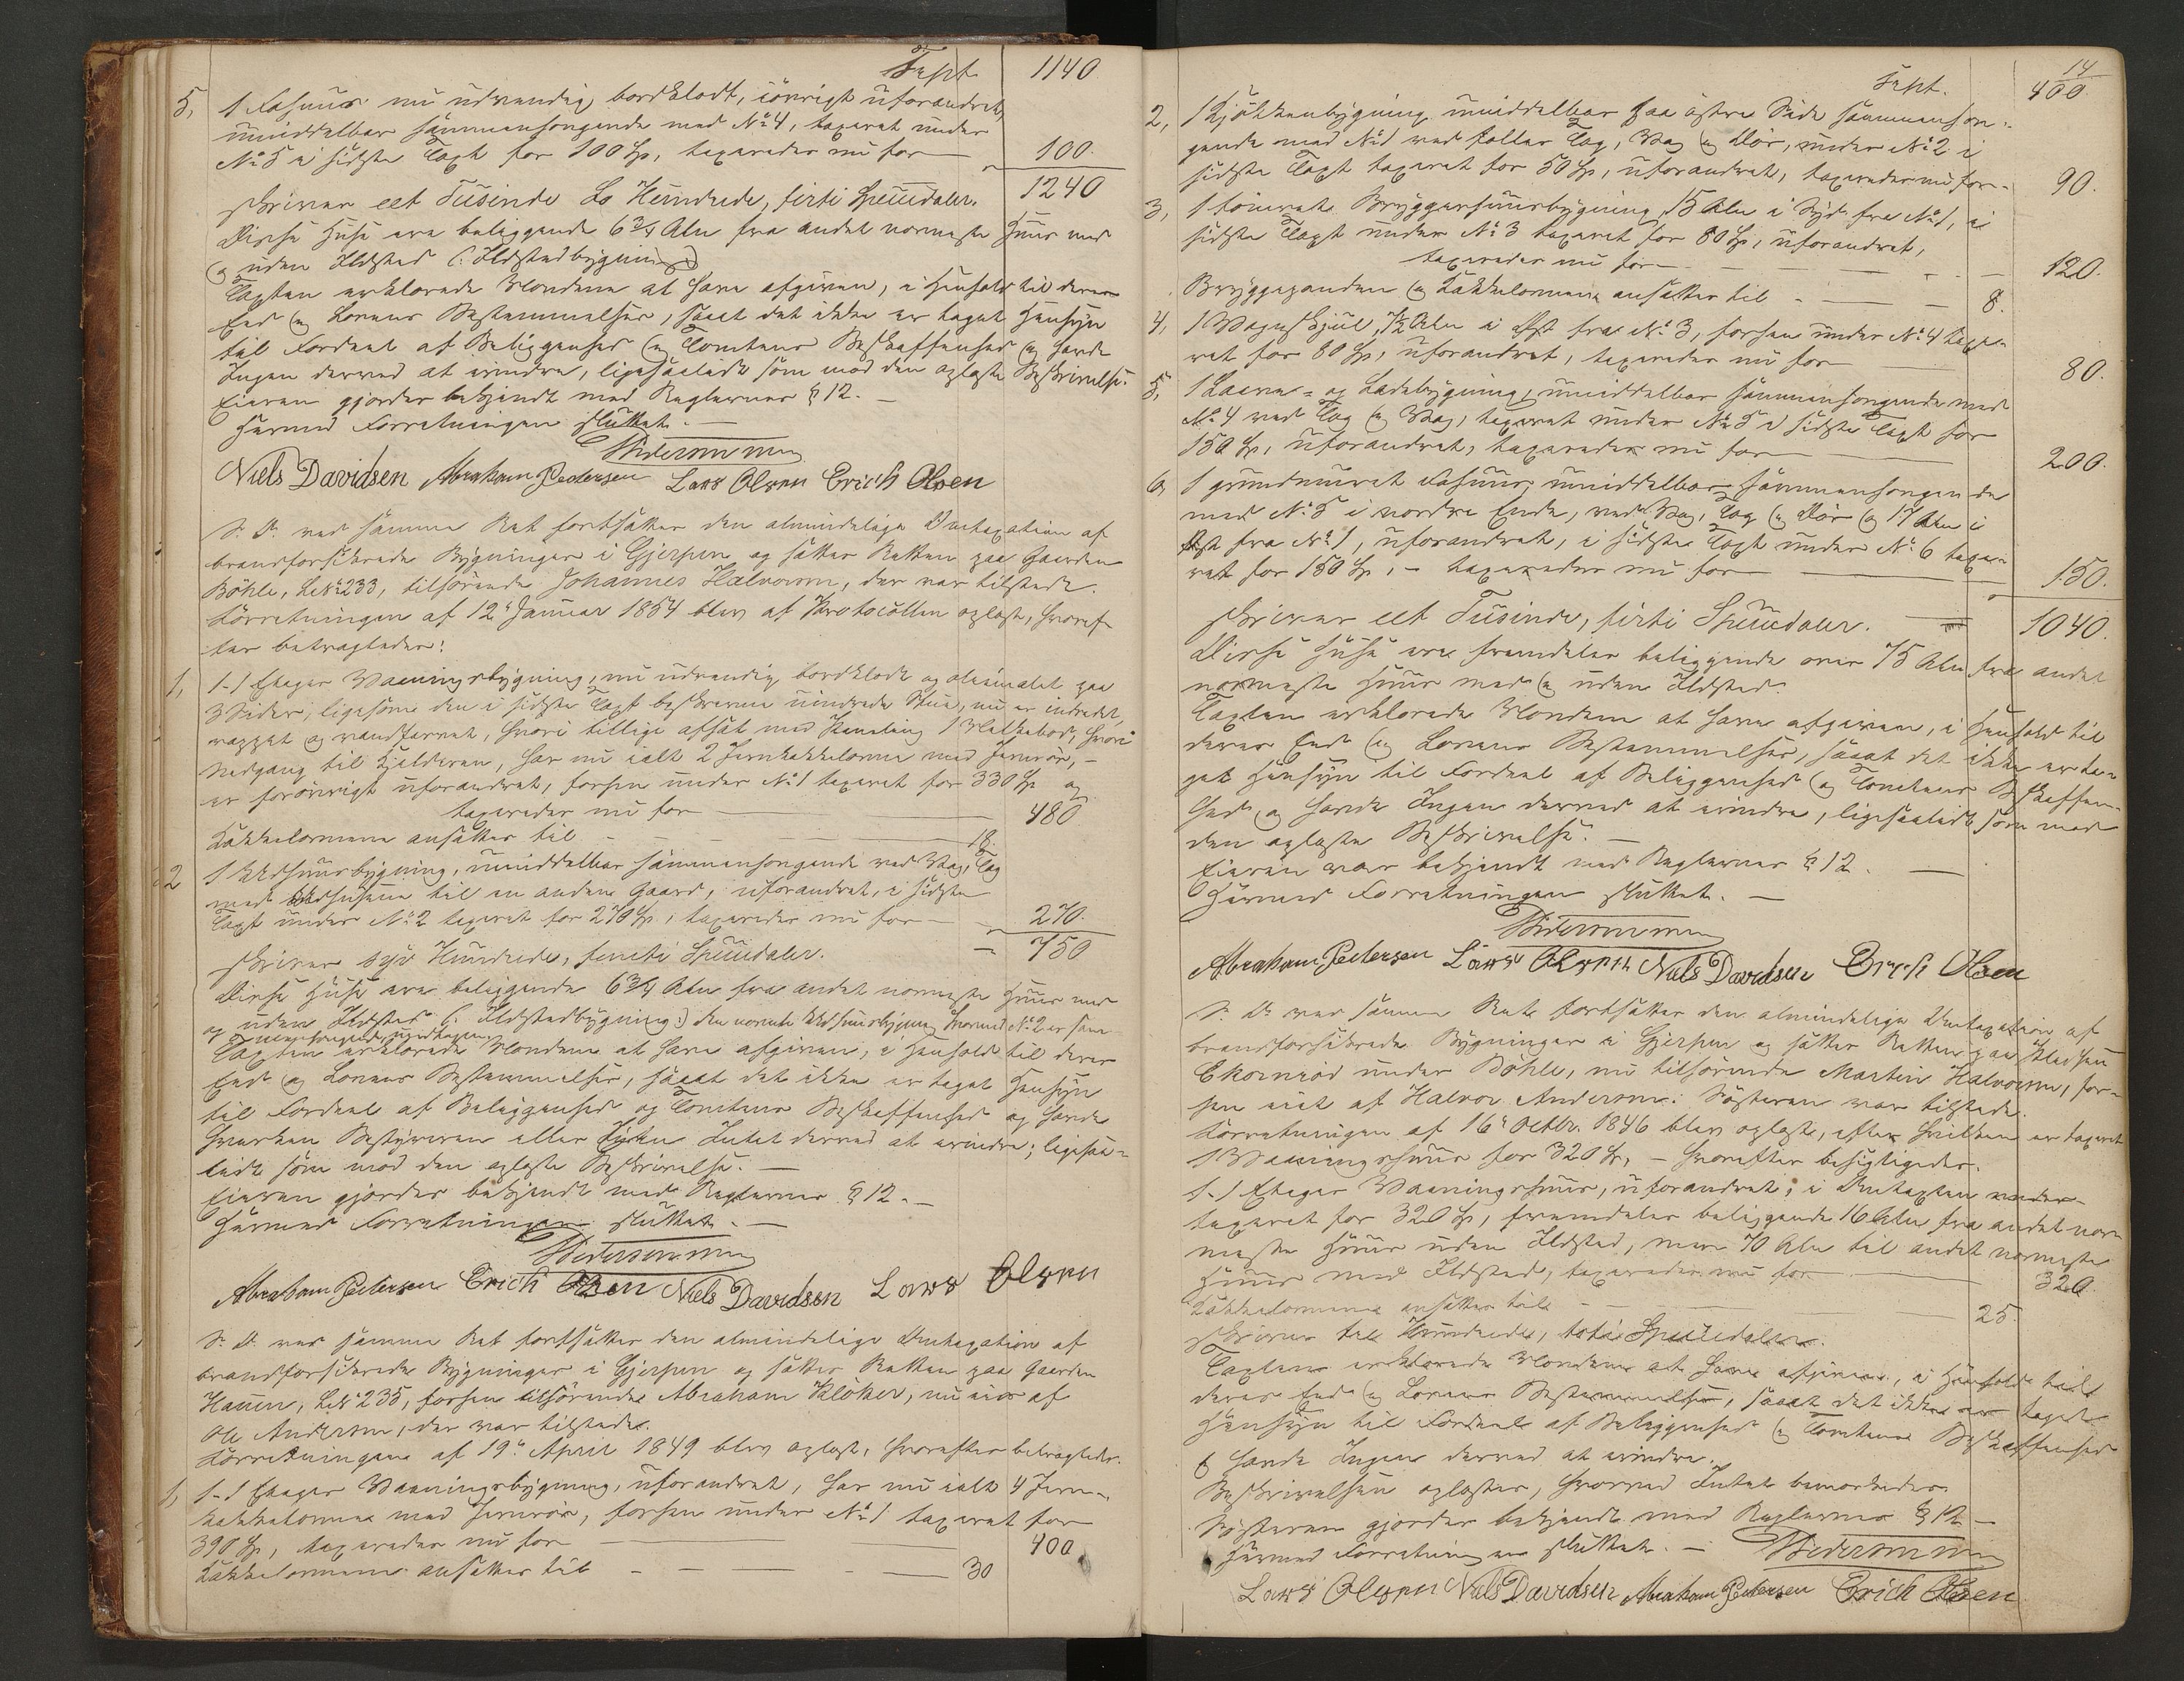 Tspt. 1140
5, 1 Fæhuus nu udvendig bordklædt, iøvrigt uforandret,
umiddelbar sammenhængende med No 4, taxeret under
No 5 i sidste Taxt for 100 Sp, taxeredes nu for 100.
skriver eet Tusinde to Hundrede, firti Speciedaler. 1240
Disse Huse ere beliggende 6 3/4 Alen fra andet nærmeste Huus med
og uden Ildsted (: Ildstedbygning :)
Taxten erklærede Mændene at have afgiven, i Henhold til deres
Eed og Lovens Bestemmelser, saaat det ikke er taget Hensyn
til Fordeel af Beliggenhed og Tomtens Beskaffenhed og havde
Ingen derved at erindre, ligesaalidt som mod den oplæste Beskrivelse.
Eieren gjordes bekjendt med Reglernes § 12. —
Hermed Forretningen sluttet. —
Niels Davidsen Abraham Pedersen Lars Olsen Erich Olsen
S. D. ved samme Ret fortsættes den almindelige Omtaxation af
brandforsikrede Bygninger i Gjerpen og sættes Retten paa Gaarden
Böhle, No 233, tilhørende Johannes Halvorsen, der var tilstede.
Forretningen af 12te Januar 1854 blev af Protocollen oplæst, hvoref-
ter betragtedes:
1, 1-1 Etages Vaaningsbygning, nu udvendig bordklædt og oliemalet paa
3 Sider, ligesom den i sidste Taxt beskrevne uindrede Stue, nu er indredet,
rappet og vandfarvet, hvori tillige afsat med Paneling 1 Melkebod, hvori
Nedgang til Kjelderen, har nu ialt 2 Jernkakkelovne med Jernrør, —
er forøvrigt uforandret, forhen under No 1 taxeret for 330 Sp og
taxeredes nu for 480
Kakkelovnene ansættes til 18.
2 1 Udhuusbygning, umiddelbar sammenhængende ved Væg, Tag
med Udhusene til en anden Gaard, uforandret, i sidste
Taxt under No 2 taxeret for 270 Sp, taxeredes nu for 270.
skriver syv Hundrede, femti Speciedaler. 750
Disse Huse ere beliggende 6 3/4 Alen fra andet nærmeste Huus med
og uden Ildsted (: Ildstedbygning :) den nævnte Udhuusbygning hvormed No 2 er sam-
Taxten erklærede Mændene at have afgiven, i Henhold til deres
Eed og Lovens Bestemmelser, saaat det ikke er taget Hensyn
til Fordeel af Beliggenhed og Tomtens Beskaffenhed og havde
hverken Bestyreren eller Eieren Intet derved at erindre; ligesaa-
lidt som mod den oplæste Beskrivelse. —
Eieren gjordes bekjendt med Reglernes § 12. —
Hermed Forretningen sluttet. —
Abraham Pedersen Erich Olsen Niels Davidsen Lars Olsen
S. D. ved samme Ret fortsættes den almindelige Omtaxation af
brandforsikrede Bygninger i Gjerpen og sættes Retten paa Gaarden
Hauen, No 235, forhen tilhørende Abraham Klöcker, nu eies af
Ole Andersen, der var tilstede.
Forretningen af 19de April 1849 blev oplæst, hvorefter betragtedes.
1, 1-1 Etages Vaaningsbygning, uforandret, har nu ialt 4 Jern-
kakkelovne med Jernrør, forhen under No 1 taxeret for
390 Sp, taxeredes nu for 400.
Kakkelovnene ansættes til 30
14
Tspt. 400.
2, 1 Kjøkkenbygning umiddelbar paa østre Side sammenhæn-
gende med No 1 ved fælles Tag, Væg og Dør, under No 2 i
sidste Taxt taxeret for 50 Sp, uforandret, taxeredes nu for 90.
3, 1 tømret Bryggerhuusbygning 15 Alen i Syd fra No 1, i
sidste Taxt under No 3 taxeret for 80 Sp, uforandret,
taxeredes nu for 120.
Bryggepanden og Kakkelovnene ansættes til 8.
4, 1 Vognskjul, 7 1/2 Alen i Øst fra No 3, forhen under No 4 taxe-
ret for 80 Sp, uforandret, taxeredes nu for 80.
5, 1 Laave- og Ladebygning, umiddelbar sammenhængende med
No 4 ved Tag og Væg, taxeret under No 5 i sidste Taxt for
150 Sp, uforandret, taxeredes nu for 200.
6, 1 grundmuret Fæhuus, umiddelbar sammenhængende
med No 5 i nordre Ende, ved Væg, Tag og Dør og 17 Alen i
Øst fra No 1, uforandret, i sidste Taxt under No 6 taxe-
ret for 150 Sp, — taxeredes nu for 150.
skriver eet Tusinde, firti Speciedaler. 1040.
Disse Huse ere fremdeles beliggende over 75 Alen fra andet
nærmeste Huus med og uden Ildsted.
Taxten erklærede Mændene at have afgiven, i Henhold til
deres Eed og Lovens Bestemmelser, saaat det ikke er ta-
get Hensyn til Fordeel af Beliggenhed og Tomtens Beskaffen-
hed, og havde Ingen derved at erindre, ligesaalidt som mod
den oplæste Beskrivelse. —
Eieren var bekjendt med Reglernes § 12. —
Hermed Forretningen sluttet. —
Abraham Pedersen Lars Olsen Niels Davidsen Erich Olsen
S. D. ved samme Ret fortsættes den almindelige Omtaxation af
brandforsikrede Bygninger i Gjerpen og sættes Retten paa Pladsen
Ekornrød under Böhle, nu tilhørende Martin Halvorsen, for-
hen eiet af Halvor Andersen. Søsteren var tilstede.
Forretningen af 16de Octbr. 1846 blev oplæst, efter hvilken er taxeret
1 Vaaningshuus for 320 Sp, — hvorefter besigtigedes.
1-1 Etages Vaaningshuus, uforandret, i Omtaxten
taxeret for 320 Sp, fremdeles beliggende 16 Alen fra andet nær-
meste Huus uden Ildsted, men 70 Alen til andet nærmeste
Huus med Ildsted, taxeredes nu for 320.
Kakkelovnene ansættes til 25.
skriver tre Hundrede, tyve Speciedaler.
Taxten erklærede Mændene at have afgiven, i Henhold til
deres Eed og Lovens Bestemmelser, saaat det ikke er taget
Hensyn til Fordeel af Beliggenhed og Tomtens Beskaffenhed
og havde Ingen derved at erindre.
Beskrivelsen oplæstes, hvorved Intet bemærkedes.
Søsteren gjordes bekjendt med Reglernes § 12 —
Hermed Forretningen sluttet. —
Lars Olsen Niels Davidsen Abraham Pedersen Erich Olsen